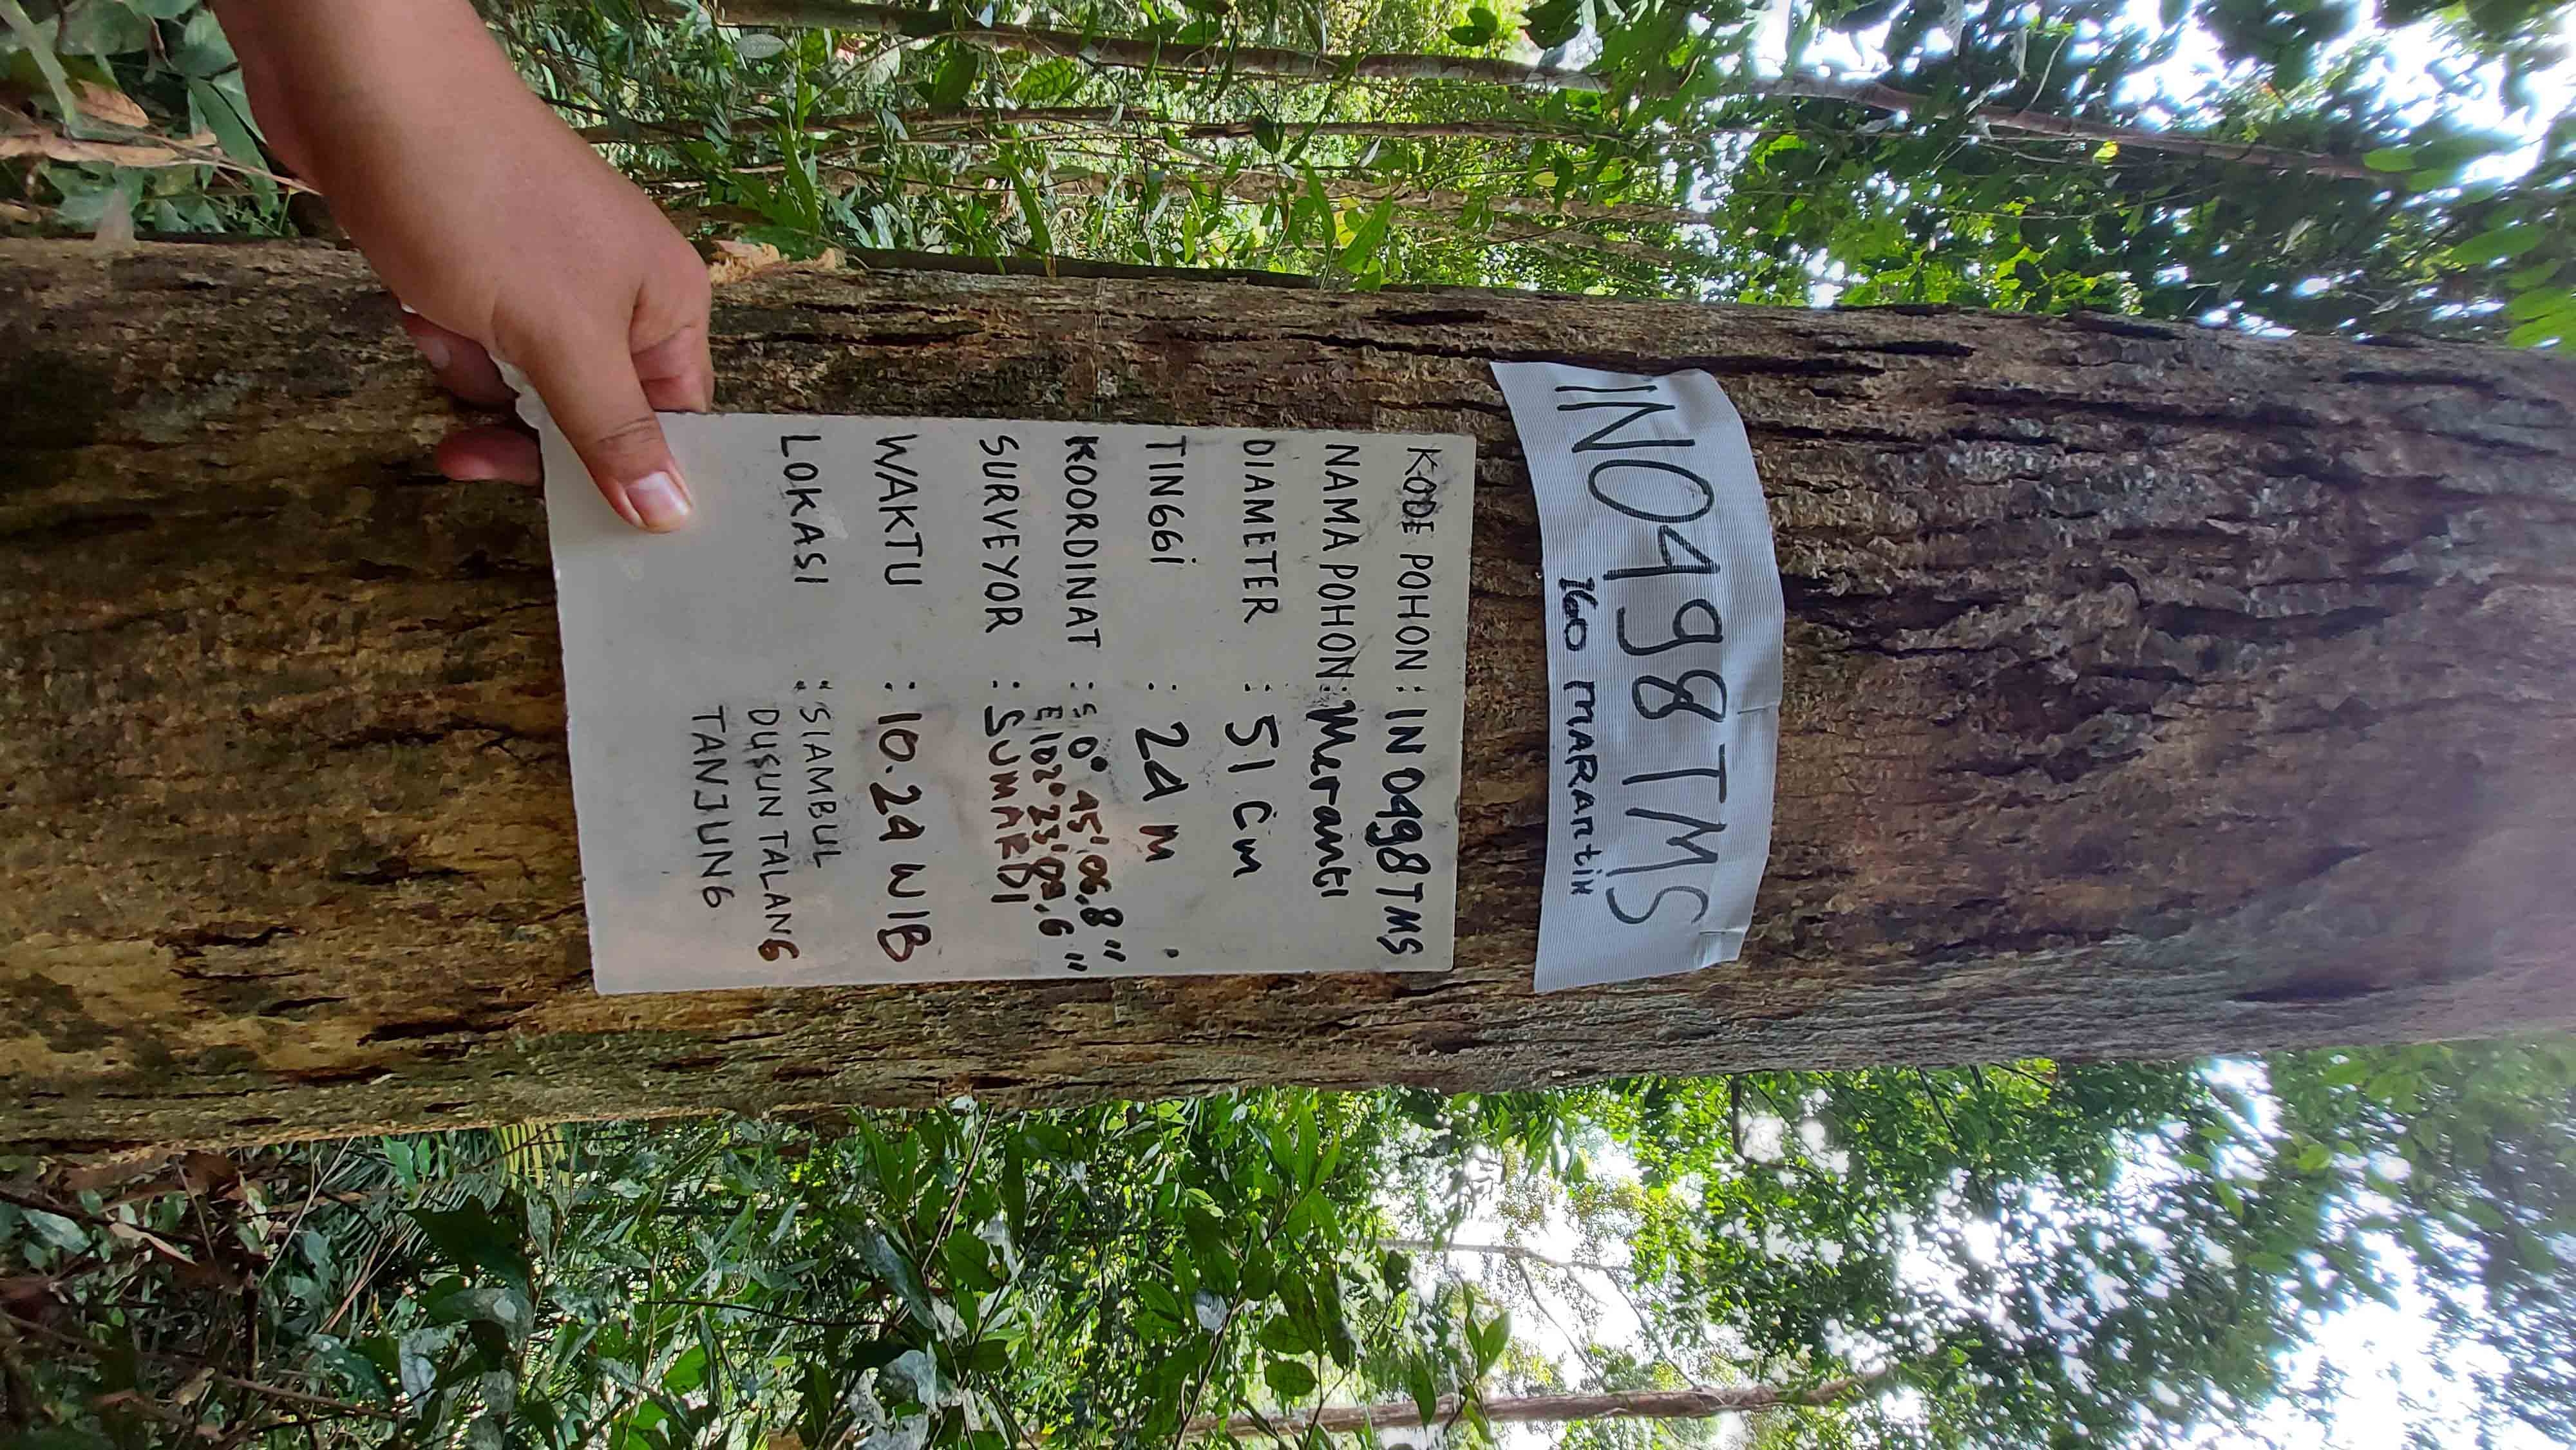 IN0498TMS
160 MARANTIH
KODE POHON : IN 0498 TMS
NAMA POHON : Meranti
DIAMETER : 51 Cm
TINGGI : 24 M
KOORDINAT : S 0° 45' 06,8"
E 102° 23' 09,6"
SURVEYOR : SUMARDI
WAKTU : 10.24 WIB
LOKASI : SIAMBUL
DUSUN TALANG
TANJUNG